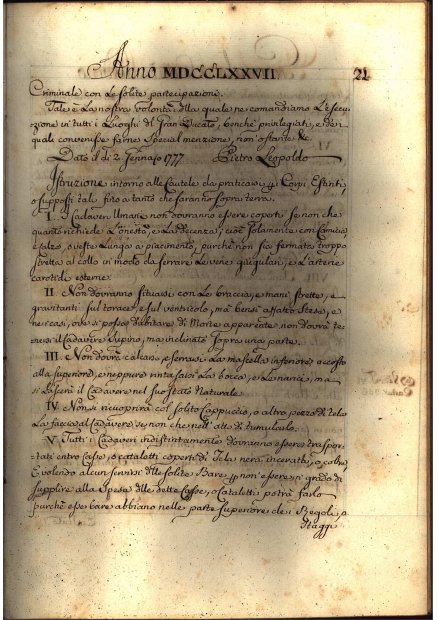 Anno MDCCLXXVII. 21
Criminale con le solite partecipazioni.
Tale è la nostra volontà della quale ne comandiamo l'esecu-
zione in tutti i Luoghi del Gran Ducato, benchè privilegiati, e dei
quali convenisse farne special menzione, non ostante &c
Dato il dì 2. Jennajo 1777. Pietro Leopoldo
Istruzione intorno alle Cautele da praticarsi Corpi Estinti,
o supposti tali fino a tanto che saranno sopra terra.
I. I Cadaveri Umani non dovranno essere coperti se non che
quanto richiede l'onestà, e la decenza, cioè solamente con Camicia
e calze, o veste lunga a piacimento, purchè non sia fermata troppo
stretta al collo in modo da serrare le vene giugulari, e l'arterie
carotidi esterne.
II. Non dovranno situarsi con le braccia, e mani strette, e
gravitanti sul torace, e sul ventricolo, mà bensì affatto stese, e
nei casi, ove si possa dubitare di Morte apparente non dovrà te-
nersi il Cadavere supino, ma inclinato sopra una parte.
III. Non dovrà calcarsi, e serrarsi la mascella inferiore accosto
alla superiore, e neppure rinta la Bocca, e le narici, ma
si lascerà il Cadavere nel suo stato Naturale.
IV. Non si ricuoprirà col solito Cappuccio, o altro pezzo di tela
la faccia al Cadavere se non che nell'atto di tumularlo.
V. Tutti i Cadaveri indistintamente dovranno essere traspor-
tati entro Casse, o cataletti coperti di Tela nera incerata, o, colte,
E volendo alcun servirsi delle solite Bare non essere in grado di
supplire alla Spesa delle dette Casse, o Cataletti potrà farlo
purchè esse bare abbiano nella parte superiore dei Regoli, o
Staggi